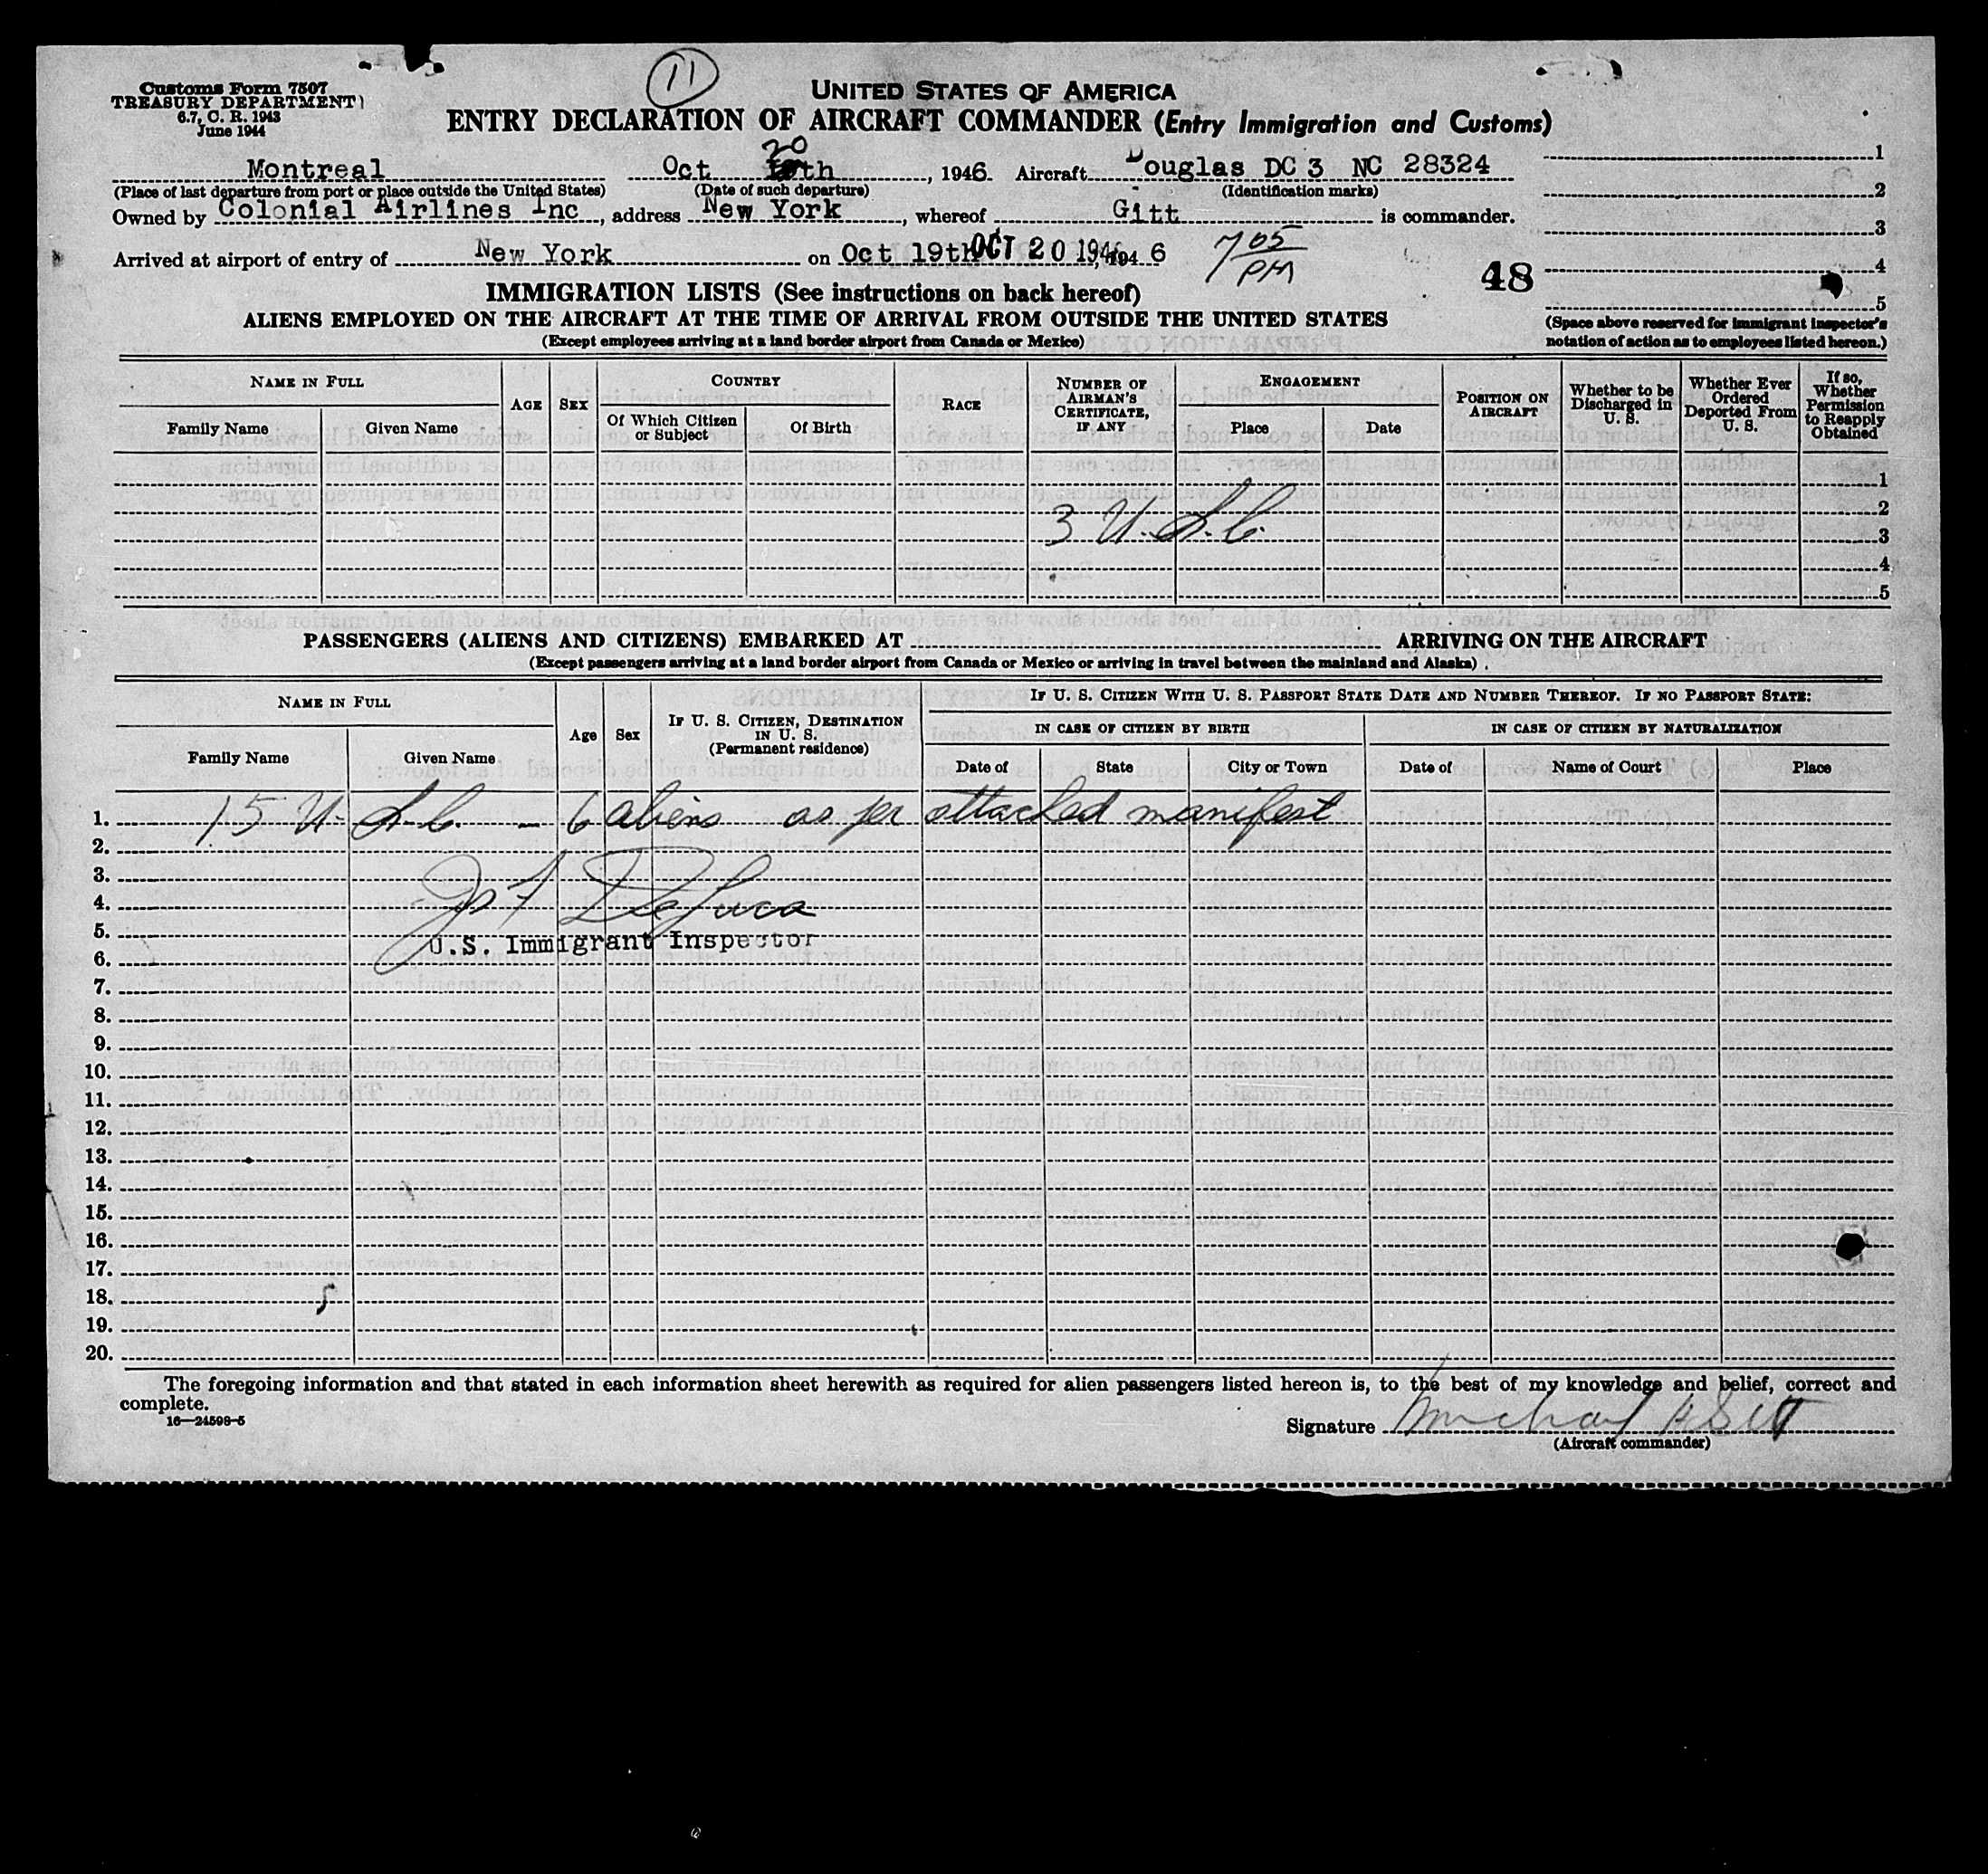 11
Customs Form 7507
TREASURY DEPARTMENT
6.7, C. R. 1943
June 1944
UNITED STATES OF AMERICA
ENTRY DECLARATION OF AIRCRAFT COMMANDER (Entry Immigration and Customs)
Montreal Oct 20th, 1946 Aircraft Douglas DC 3 NC 28324
(Place of last departure from port or place outside the United States) (Date of such departure) (Identification marks)
Owned by Colonial Airlines Inc, address New York, whereof Gitt is commander.
Arrived at airport of entry of New York on Oct 19th OCT 20 1946, 194 6 7 05 PM
48
1
2
3
4
5
(Space above reserved for immigrant inspector's
notation of action as to employees listed hereon.)
IMMIGRATION LISTS (See instructions on back hereof)
ALIENS EMPLOYED ON THE AIRCRAFT AT THE TIME OF ARRIVAL FROM OUTSIDE THE UNITED STATES
(Except employees arriving at a land border airport from Canada or Mexico)
NAME IN FULL
Family Name
Given Name
AGE
SEX
COUNTRY
Of Which Citizen or Subject
Of Birth
RACE
NUMBER OF AIRMAN'S CERTIFICATE, IF ANY
ENGAGEMENT
Place
Date
POSITION ON AIRCRAFT
Whether to be Discharged in U. S.
Whether Ever Ordered Deported From U. S.
If so, Whether Permission to Reapply Obtained
1
2
3 U.S.C.
3
4
5
PASSENGERS (ALIENS AND CITIZENS) EMBARKED AT ARRIVING ON THE AIRCRAFT
(Except passengers arriving at a land border airport from Canada or Mexico or arriving in travel between the mainland and Alaska)
NAME IN FULL
Family Name
Given Name
Age
Sex
IF U. S. CITIZEN, DESTINATION IN U. S.
(Permanent residence)
IF U. S. CITIZEN WITH U. S. PASSPORT STATE DATE AND NUMBER THEREOF. IF NO PASSPORT STATE:
IN CASE OF CITIZEN BY BIRTH
Date of
State
City or Town
IN CASE OF CITIZEN BY NATURALIZATION
Date of
Name of Court
Place
1. 15 U.S.C. - 6 aliens as per attached manifest
2.
3.
4. Jos F DeLuca
5. U.S. Immigrant Inspector
6.
7.
8.
9.
10.
11.
12.
13.
14.
15.
16.
17.
18.
19.
20.
The foregoing information and that stated in each information sheet herewith as required for alien passengers listed hereon is, to the best of my knowledge and belief, correct and
complete.
16—24598-5
Signature
(Aircraft commander)